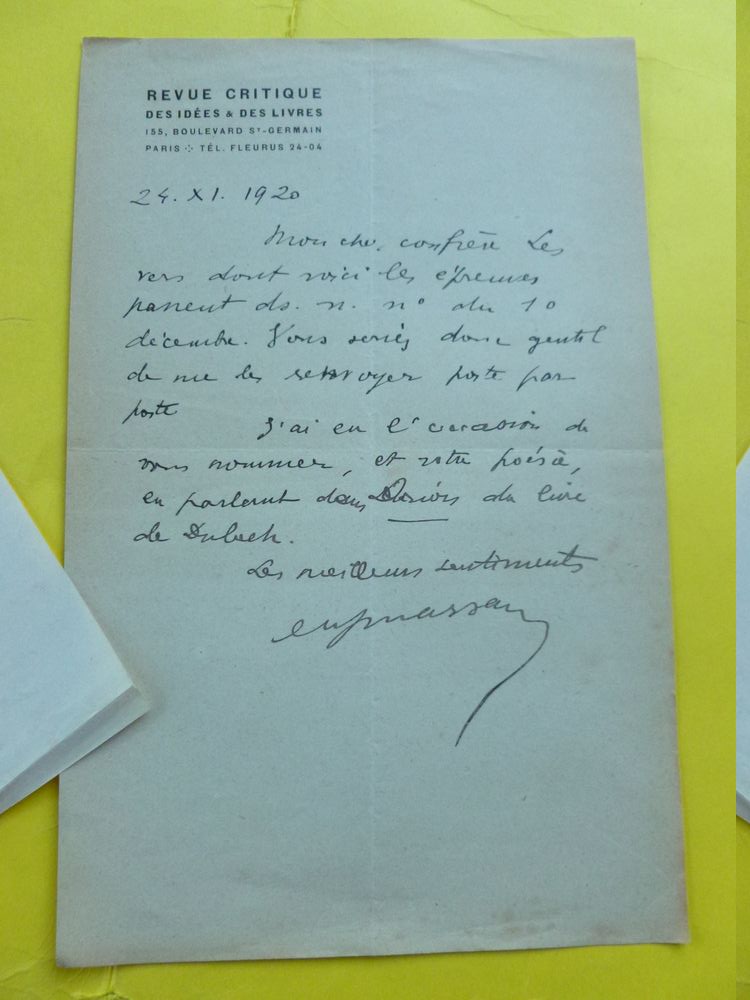 REVUE CRITIQUE
DES IDÉES & DES LIVRES
155, BOULEVARD ST-GERMAIN
PARIS ⁘ TÉL. FLEURUS 24-04
24. XI. 1920
Mon cher confrère Les
vers dont voici les épreuves
passent ds. n. n° du 10
décembre. Vous seriez donc gentil
de me les renvoyer poste par
poste
J'ai eu l'occasion de
vous nommer, et votre poésie,
en parlant dans du livre
de Dubech.
Les meilleurs sentiments